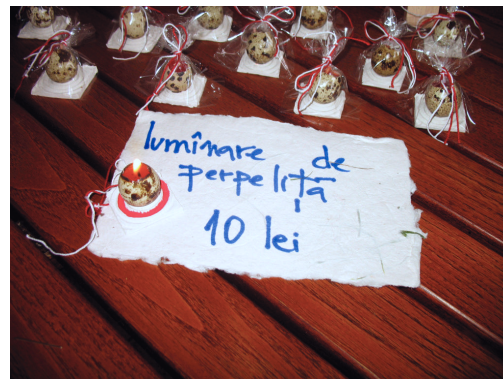 lumînare de
perpeliță
10 lei